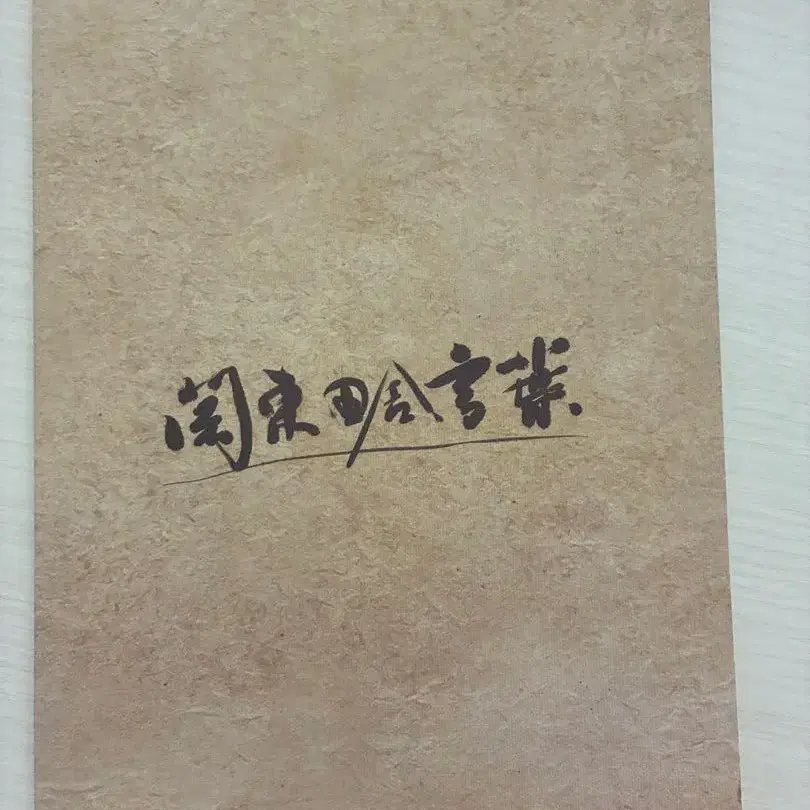 関東田舎言葉